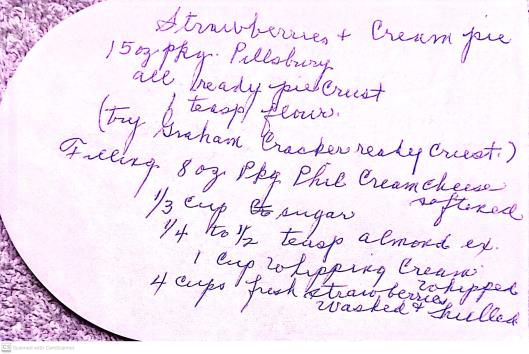 Strawberries + Cream pie
15 oz pkg. Pillsbury
all ready pie Crust
1 teasp flour.
(try Graham Cracker ready Crust.)
Filling 8 oz Pkg Phil Cream cheese
softened
1/3 cup sugar
1/4 to 1/2 teasp almond ex.
1 cup whipping Cream
whipped
4 cups fresh strawberries
washed & hulled
CS Scanned with CamScanner